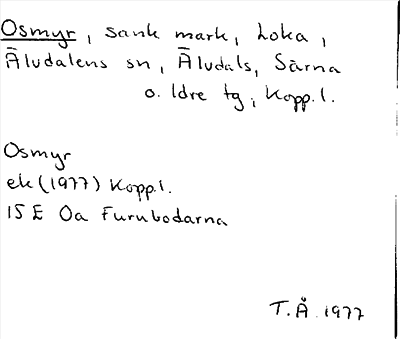 Osmyr, sank mark, Loka,
Äludalens sn, Äludals, Särna
o. Idre tg, Kopp. l.
Osmyr
ek (1977) Kopp. l.
15 E Oa Furubodarna
T.Å. 1977